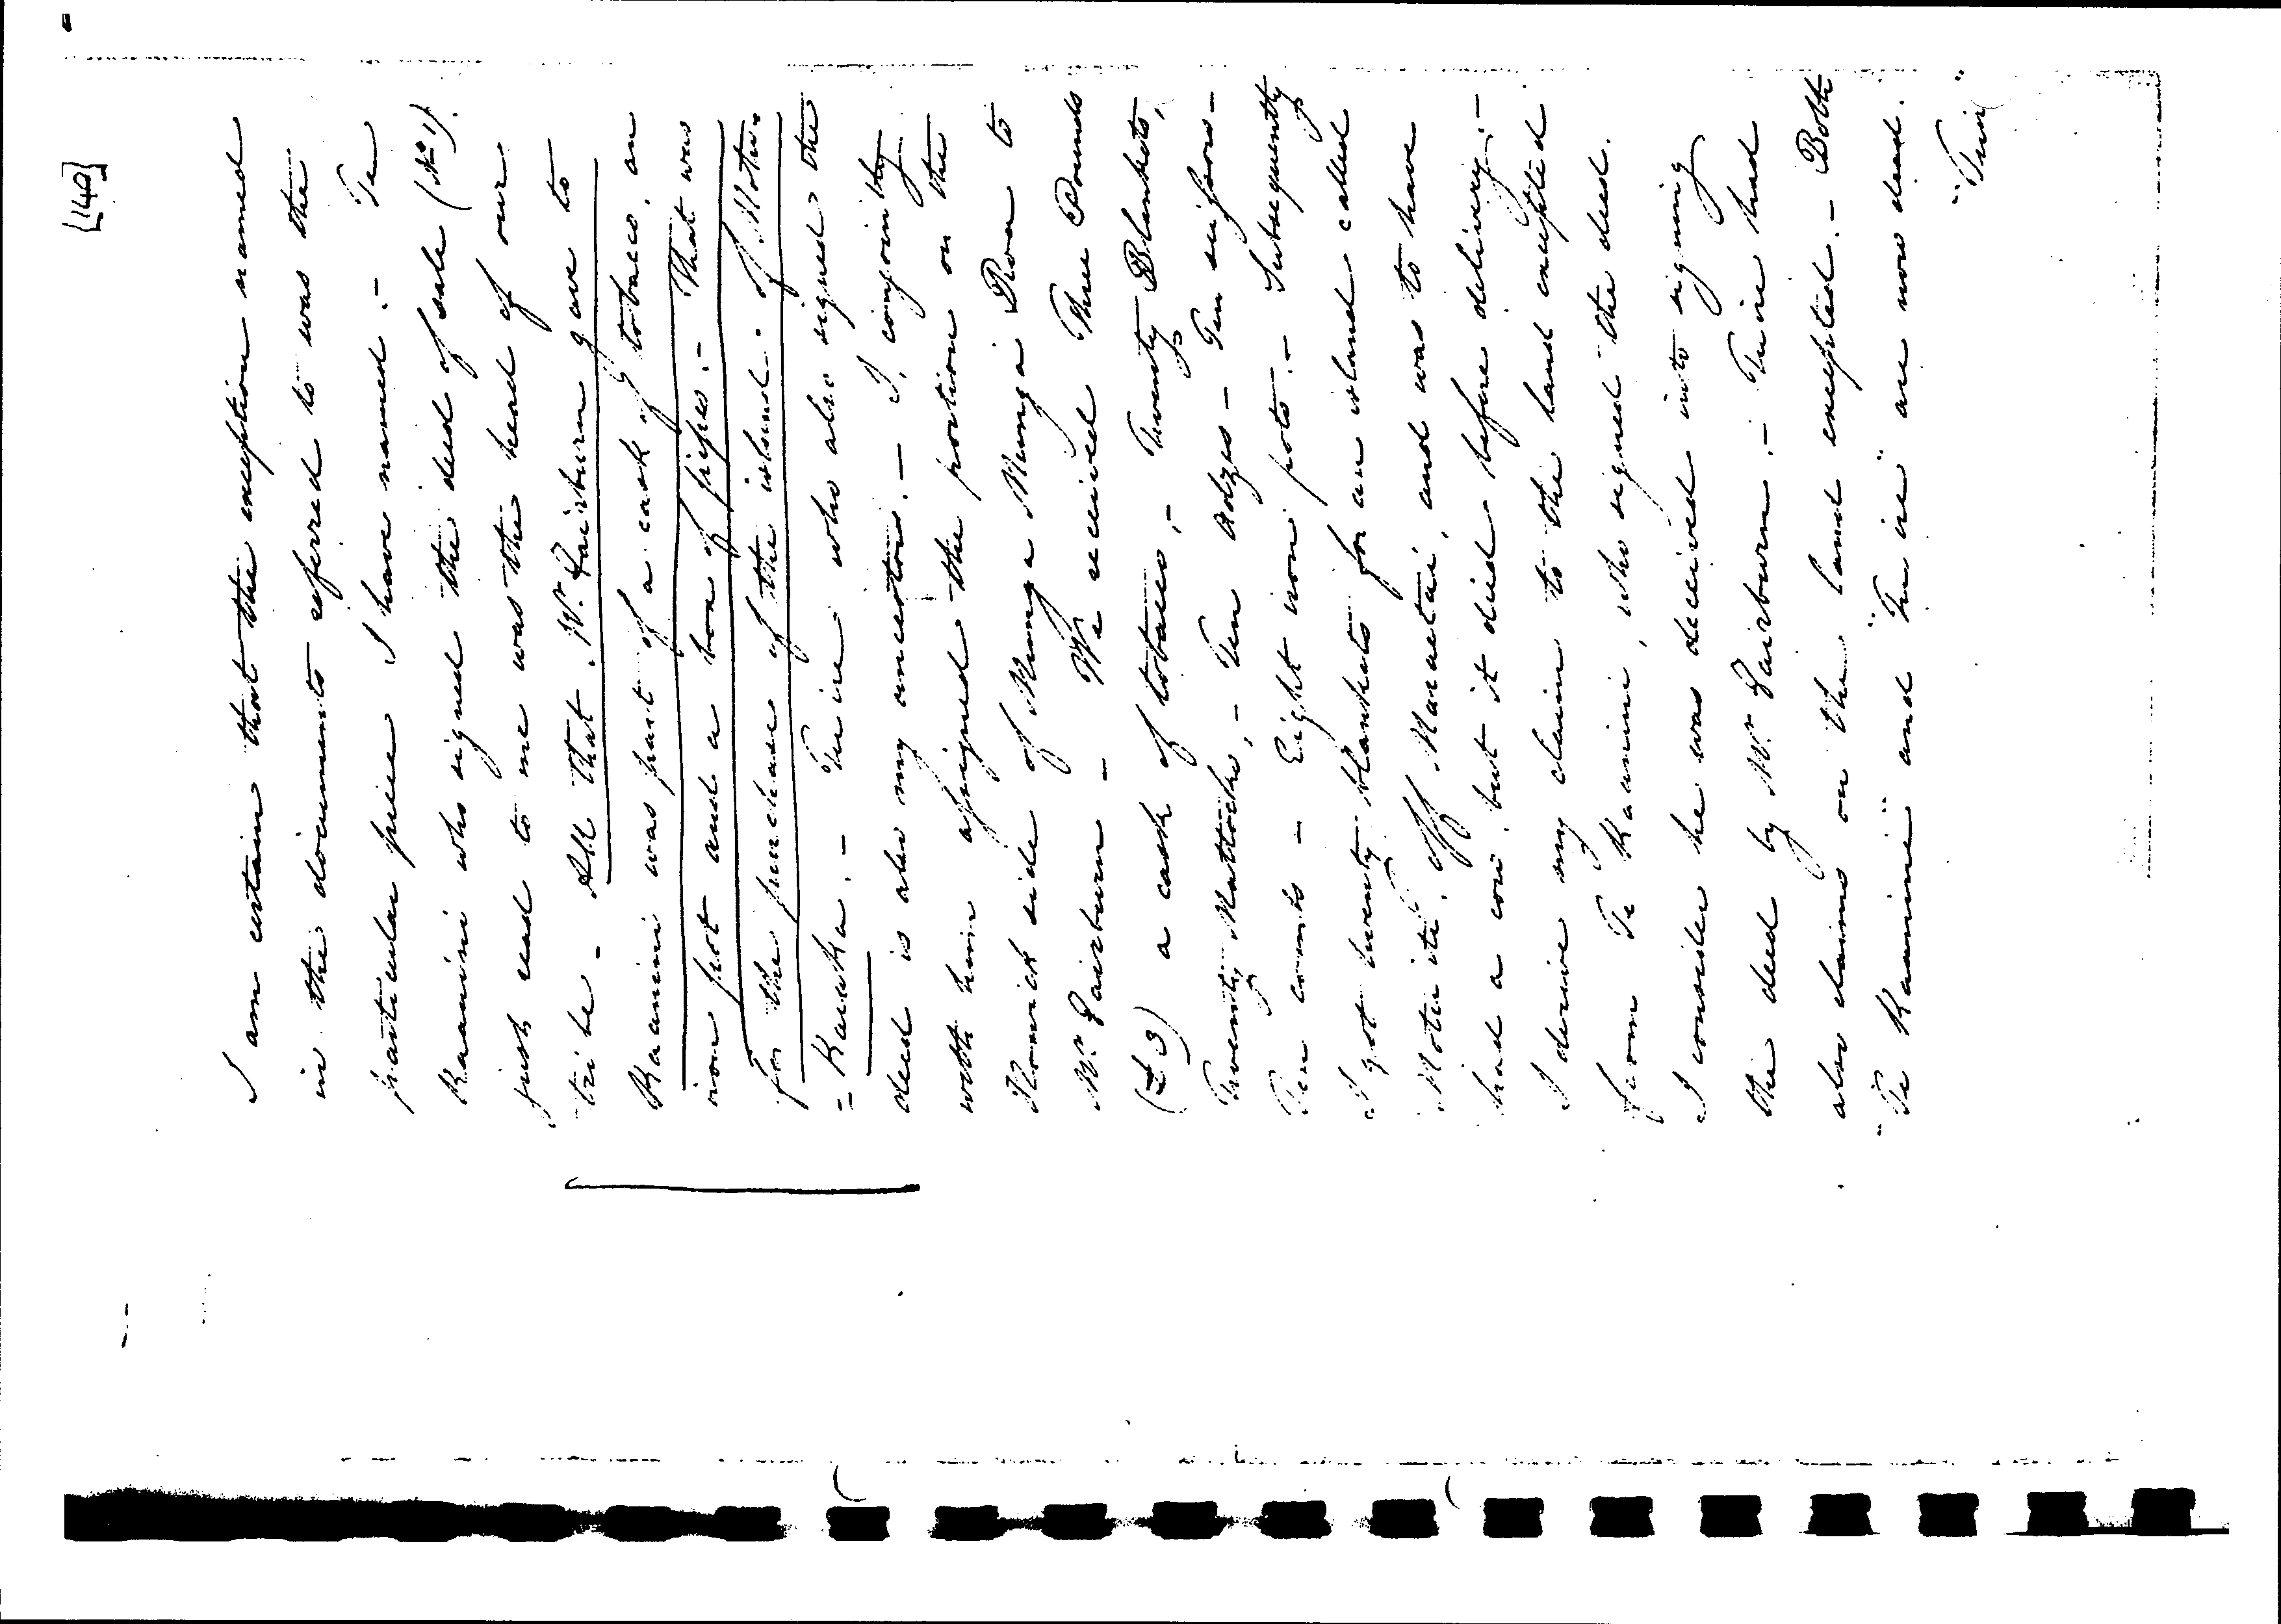 [140]
I am certain that the exception named
in the documents referred to was the
particular piece I have named. - Te
Kaanini who signed the deed of sale (No 1).
just read to me was the head of our
tribe - All that Mr. Fairburn gave to
Kaanini was part of a cask of tobacco, an
iron pot and a box of pipes. - That was
for the purchase of the island. of Motu-
- Kauka. - Tuire who also signed the
deed is also my ancestor. - I, conjointly
with him assigned the portion on the
Howick side of Munga Munga Roa to
Mr Fairburn - We received Three Pounds
(£3) a cask of tobacco, - Twenty Blankets,
Twenty Mattocks, - Ten Adzes - Ten scissors -
Ten combs - Eight iron pots. - Subsequently
I got twenty blankets for an island called
Motu iti, off Maraetai, and was to have
had a cow, but it died before delivery. -
I derive my claim to the land excepted
from Te Kaanini, who signed the deed.
I consider he was deceived into signing
the deed by Mr Fairburn. - Tuire had
also claims on the land excepted. - Both
"Te Kaanini" and "Tuire" are now dead.